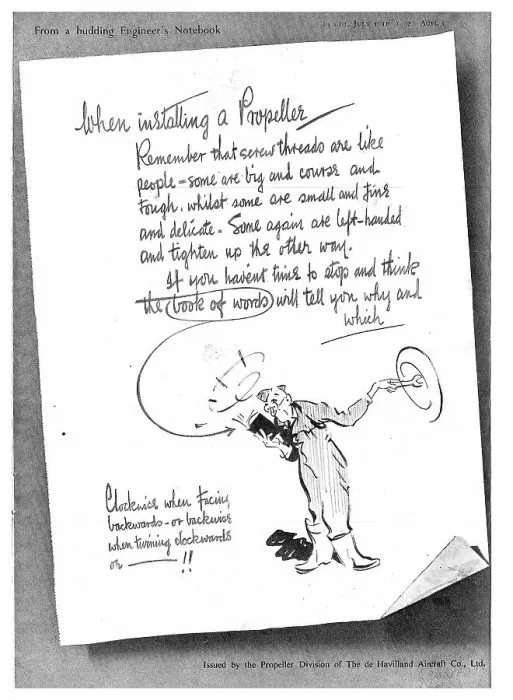 From a budding Engineer's Notebook
When installing a Propeller
Remember that screw threads are like
people - some are big and course and
tough, whilst some are small and fine
and delicate. Some again are left-handed
and tighten up the other way.
If you havent time to stop and think
the (book of words) will tell you why and
which
Clockwise when facing
backwards - or backwise
when turning clockwards
or !!
Issued by the Propeller Division of The de Havilland Aircraft Co., Ltd.